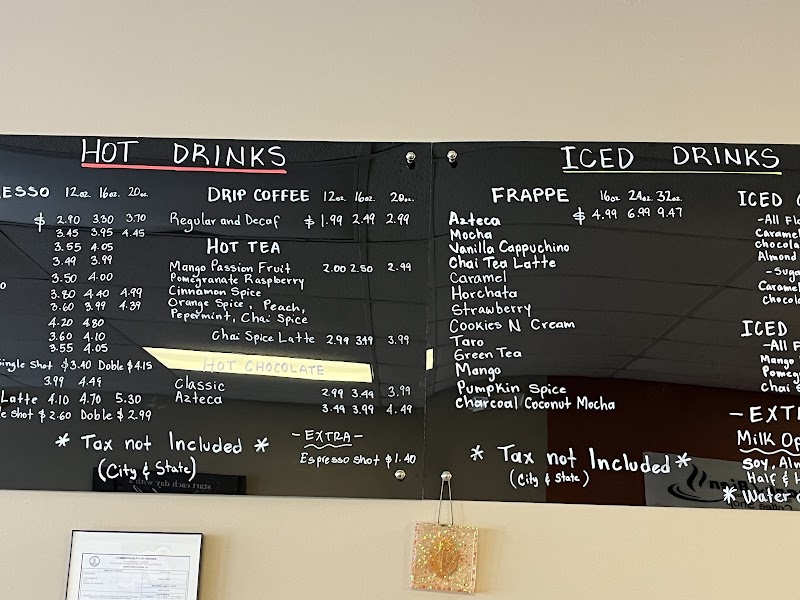 HOT DRINKS
ESSO 12oz. 16oz. 20oz.
$ 2.90 3.30 3.70
3.45 3.95 4.45
3.55 4.05
3.49 3.99
3.50 4.00
3.80 4.40 4.99
3.60 3.99 4.39
4.20 4.80
3.60 4.10
3.55 4.05
Single Shot $3.40 Doble $4.15
3.99 4.49
Latte 4.10 4.70 5.30
Shot $2.60 Doble $2.99
DRIP COFFEE 12oz. 16oz. 20oz.
Regular and Decaf $1.99 2.49 2.99
HOT TEA
Mango Passion Fruit 2.00 2.50 2.99
Pomegranate Raspberry
Cinnamon Spice
Orange Spice, Peach,
Pepermint, Chai Spice
Chai Spice Latte 2.99 3.49 3.99
HOT CHOCOLATE
Classic 2.99 3.49 3.99
Azteca 3.49 3.99 4.49
* Tax not Included *
(City & State)
-EXTRA-
Espresso Shot $1.40
ICED DRINKS
FRAPPE 16oz 24oz. 32oz.
Azteca $4.99 6.99 9.47
Mocha
Vanilla Cappuchino
Chai Tea Latte
Caramel
Horchata
Strawberry
Cookies N Cream
Taro
Green Tea
Mango
Pumpkin Spice
Charcoal Coconut Mocha
* Tax not Included *
(City & State)
ICED
-All Fl
Caramel
chocola
Almond
-Suga
Caramel
chocol
ICED
-All F
Mango
Pomeg
Chai S
-EXTR
Milk Op
Soy, Alm
Half & H
*Water
start each day with a
COMMONWEALTH OF VIRGINIA